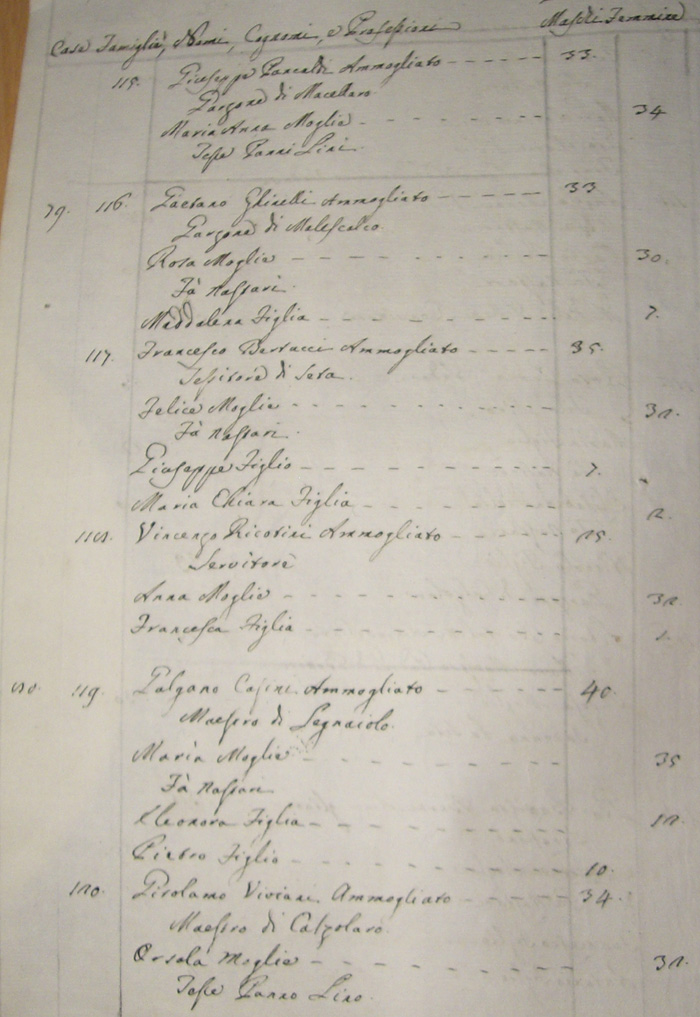 Case Famiglie, Nomi, Cognomi, e Professioni Maschi Femmine
115. Giuseppe Pancaldi Ammogliato 33.
Garzone di Macellaro
Maria Anna Moglie 34
Tesse Panni Lini
79. 116. Gaetano Ghinelli Ammogliato 33
Garzone di Malescalco
Rosa Moglie 30.
Fà Nastari.
Maddalena Figlia 7.
117. Francesco Bertucci Ammogliato 35.
Tessitore di Seta.
Felice Moglie
Fà Nastari.
Giuseppe Figlio 7.
Maria Chiara Figlia
118. Vincenzo Ricotini Ammogliato
Servitore
Anna Moglie
Francesca Figlia 1.
80. 119. Galgano Casini Ammogliato 40.
Maestro di Legnaiolo.
Maria Moglie 35
Fà Nastari
Eleonora Figlia
Pietro Figlio 10.
120. Girolamo Viviani Ammogliato 34.
Maestro di Calzolaro.
Orsola Moglie
Tesse Panno Lino.